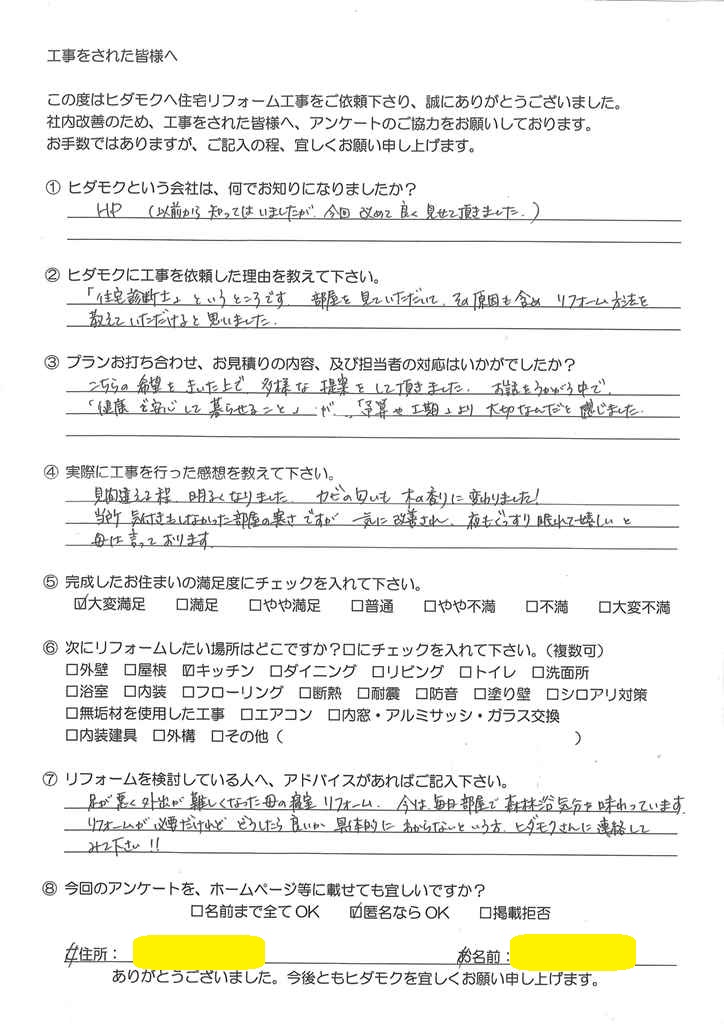 工事をされた皆様へ
この度はヒダモクへ住宅リフォーム工事をご依頼下さり、誠にありがとうございました。
社内改善のため、工事をされた皆様へ、アンケートのご協力をお願いしております。
お手数ではありますが、ご記入の程、宜しくお願い申し上げます。
① ヒダモクという会社は、何でお知りになりましたか？
HP （以前から知ってはいましたが、今回 改めて良く見せて頂きました。）
② ヒダモクに工事を依頼した理由を教えて下さい。
「住宅診断士」というところです。 部屋を見ていただいて、その原因も含め リフォーム方法を
教えていただけると思いました。
③ プランお打ち合わせ、お見積りの内容、及び担当者の対応はいかがでしたか？
こちらの希望をきいた上で、多様な提案をして頂きました。 お話をうかがう中で、
「健康で安心して暮らせること」が、「予算や工期」より大切なんだと感じました。
④ 実際に工事を行った感想を教えて下さい。
見間違える程、明るくなりました。 カビの匂いも 木の香りに変わりました！
当所 気付きもしなかった部屋の寒さですが 一気に改善され、夜もぐっすり眠れて嬉しいと
母は言っております。
⑤ 完成したお住まいの満足度にチェックを入れて下さい。
☑大変満足 □満足 □やや満足 □普通 □やや不満 □不満 □大変不満
⑥ 次にリフォームしたい場所はどこですか？□にチェックを入れて下さい。（複数可）
□外壁 □屋根 ☑キッチン □ダイニング □リビング □トイレ □洗面所
□浴室 □内装 □フローリング □断熱 □耐震 □防音 □塗り壁 □シロアリ対策
□無垢材を使用した工事 □エアコン □内窓・アルミサッシ・ガラス交換
□内装建具 □外構 □その他（ ）
⑦ リフォームを検討している人へ、アドバイスがあればご記入下さい。
足が悪く外出が難しくなった母の寝室リフォーム。 今は毎日部屋で森林浴気分を味わっています。
リフォームが必要だけれど どうしたら良いか 具体的に わからないという方、ヒダモクさんに連絡して
みて下さい！！
⑧ 今回のアンケートを、ホームページ等に載せても宜しいですか？
□名前まで全てOK ☑匿名ならOK □掲載拒否
ご住所： お名前：
ありがとうございました。今後ともヒダモクを宜しくお願い申し上げます。